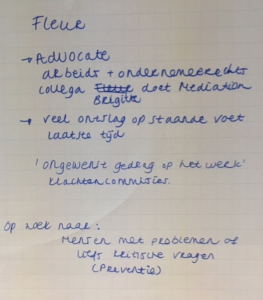 Fleur
→ Advocate
arbeids + ondernemersrechts
collega Fleur doet Mediation
Brigitte
→ veel ontslag op staande voet
laatste tijd
'ongewenst gedrag op het werk'
klachtencommissies.
op zoek naar:
Mensen met problemen of
kritische vragen
(Preventie)